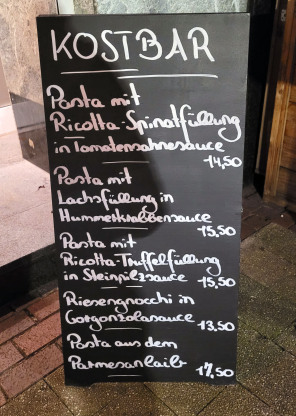 KOSTBAR
Pasta mit
Ricotta-Spinatfüllung
in Tomatensahnesauce
-14,50
Pasta mit
Lachsfüllung in
Hummerkrabbensauce
-15,50
Pasta mit
Ricotta-Trüffelfüllung
in Steinpilzsauce -15,50
Riesengnocchi in
Gorgonzolasauce -13,50
Pasta aus dem
Parmesanlaib -17,50